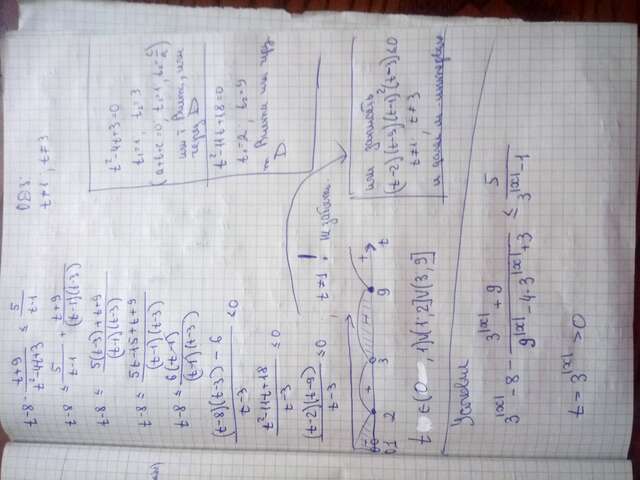 t-8 - \frac{t+9}{t²-4t+3} ≤ \frac{5}{t-1}
t-8 ≤ \frac{5}{t-1} + \frac{t+9}{(t-1)(t-3)}
t-8 ≤ \frac{5(t-3)+t+9}{(t-1)(t-3)}
t-8 ≤ \frac{5t-15+t+9}{(t-1)(t-3)}
t-8 ≤ \frac{6(t-1)}{(t-1)(t-3)}
\frac{(t-8)(t-3)-6}{t-3} ≤ 0
\frac{t²-11t+18}{t-3} ≤ 0
\frac{(t-2)(t-9)}{t-3} ≤ 0
t≠1 ! не забыть.
- + - +
0 1 2 3 9 t
t ∈ (0 , 1)∪(1;2]∪(3,9]
ОДЗ:
t≠1, t≠3
t²-4t+3=0
t₁=1, t₂=3
(a+b+c=0, t₁=1, t₂=\frac{c}{a})
или т Виета, или
через D
t²-11t+18=0
t₁=2, t₂=9
т Виета или чрз
D
или записать
(t-2)(t-3)(t-1)²(t-9)≤0
t≠1, t≠3
и далее м интервалов
Условие
3^{|x|} - 8 - \frac{3^{|x|}+9}{9^{|x|}-4·3^{|x|}+3} ≤ \frac{5}{3^{|x|}-1}
t = 3^{|x|} > 0